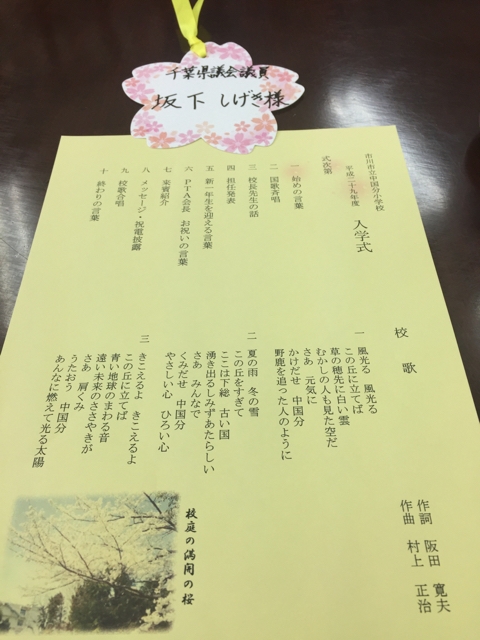 千葉県議会議員
坂下 しげき様
市川市立中国分小学校
平成二十九年度 入学式
式次第
一 始めの言葉
二 国歌斉唱
三 校長先生の話
四 担任発表
五 新一年生を迎える言葉
六 PTA会長 お祝いの言葉
七 来賓紹介
八 メッセージ・祝電披露
九 校歌合唱
十 終わりの言葉
校歌
作詞 阪田 寛夫
作曲 村上 正治
一 風光る 風光る
この丘に立てば
草の穂先に白い雲
むかしの人も見た空だ
さあ 元気に
かけだせ 中国分
野鹿を追った人のように
二 夏の雨 冬の雪
この丘をすぎて
ここは下総 古い国
湧き出るしみずあたらしい
さあ みんなで
くみだせ 中国分
やさしい心 ひろい心
三 きこえるよ きこえるよ
この丘に立てば
青い地球のまわる音
遠い未来のささやきが
さあ 肩くみ
うたおう 中国分
あんなに燃えて光る太陽
校庭の満開の桜